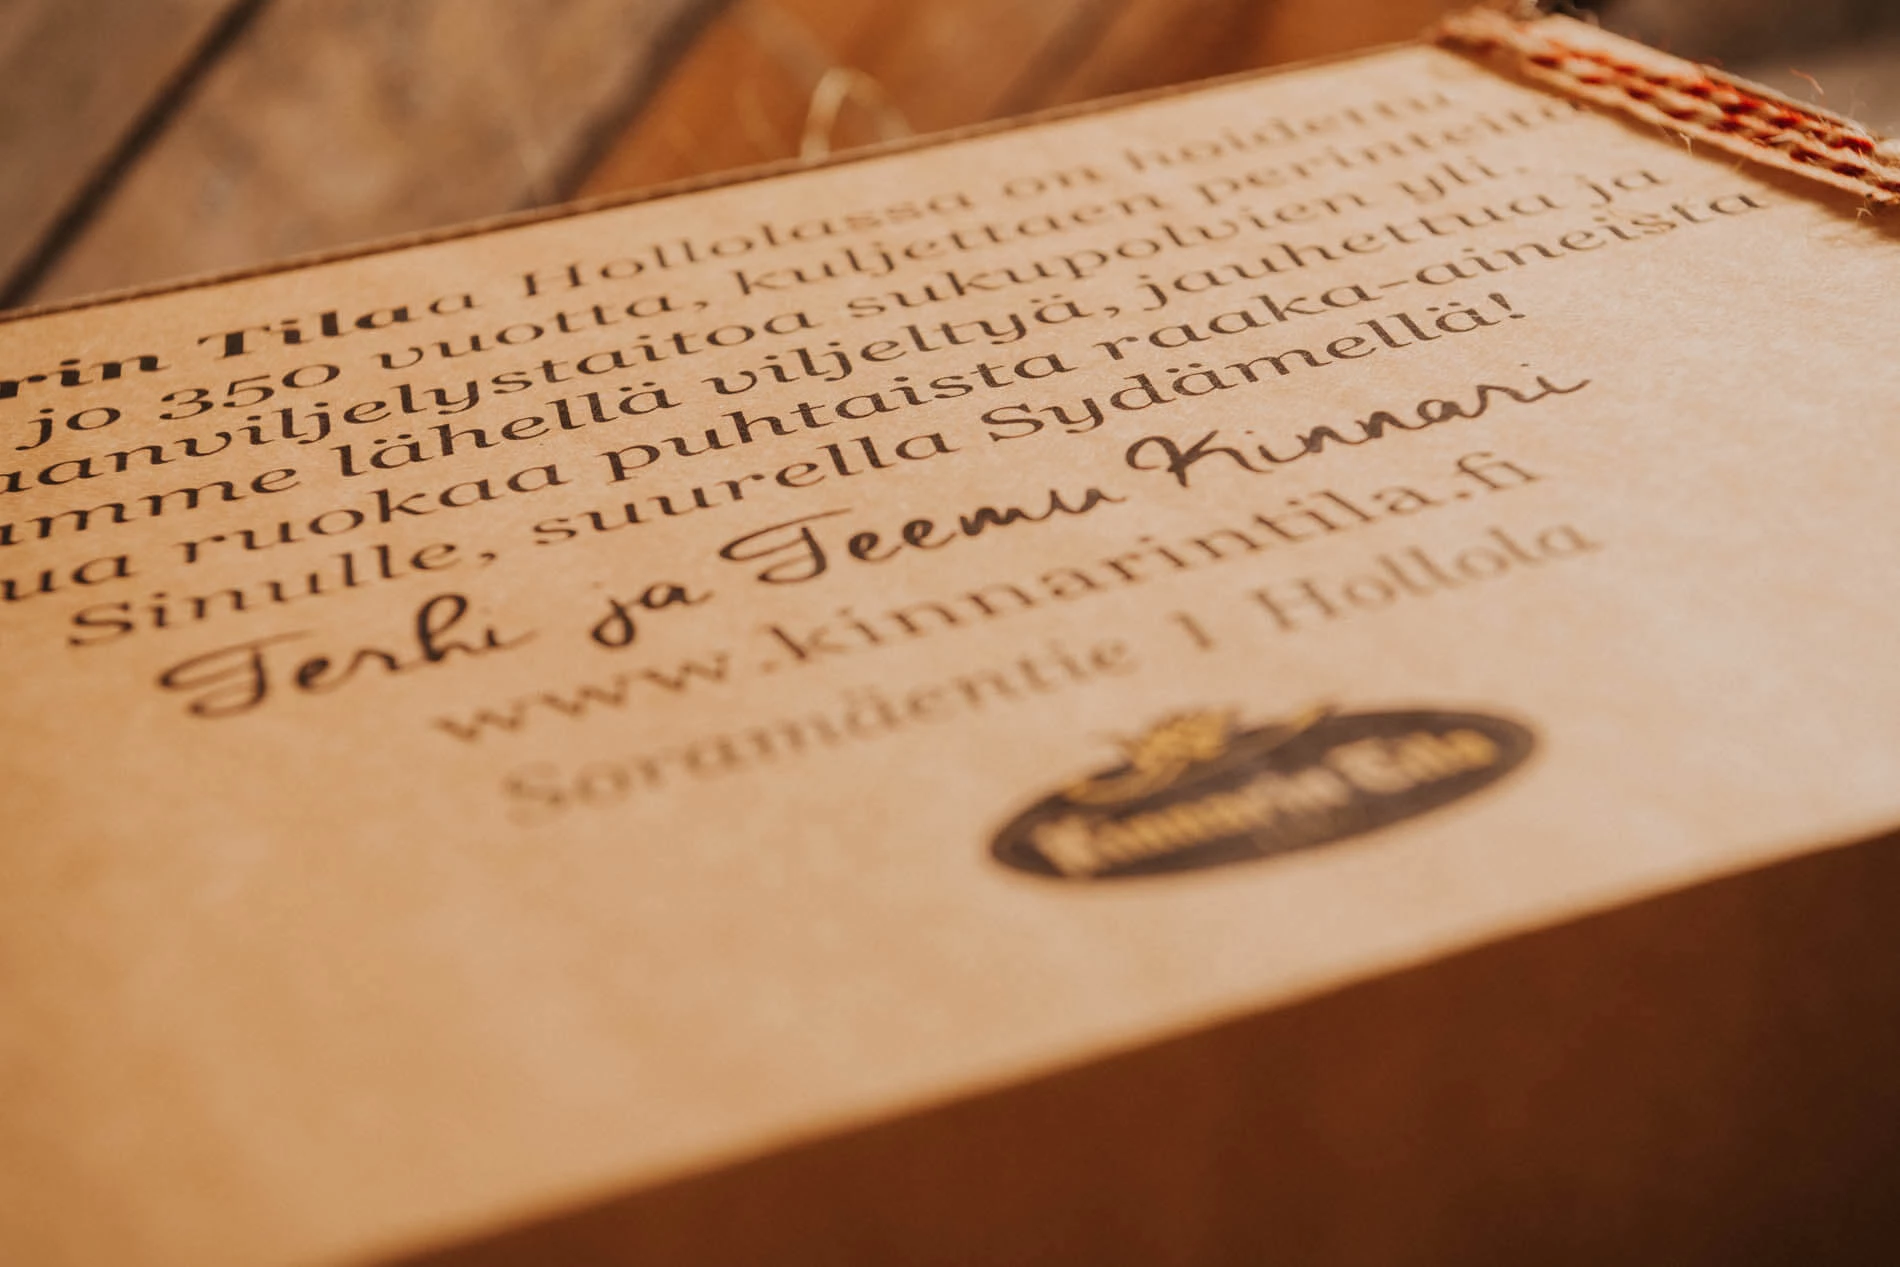 rin Tilaa Hollolassa on hoidettu
jo 350 vuotta, kuljettaen perinteitä
aanviljelystaitoa sukupolvien yli.
amme lähellä viljeltyä, jauhettua ja
ua ruokaa puhtaista raaka-aineista
Sinulle, suurella Sydämellä!
Terhi ja Teemu Kinnari
www.kinnarintila.fi
Soramäentie 1 Hollola
Kinnarin Tila